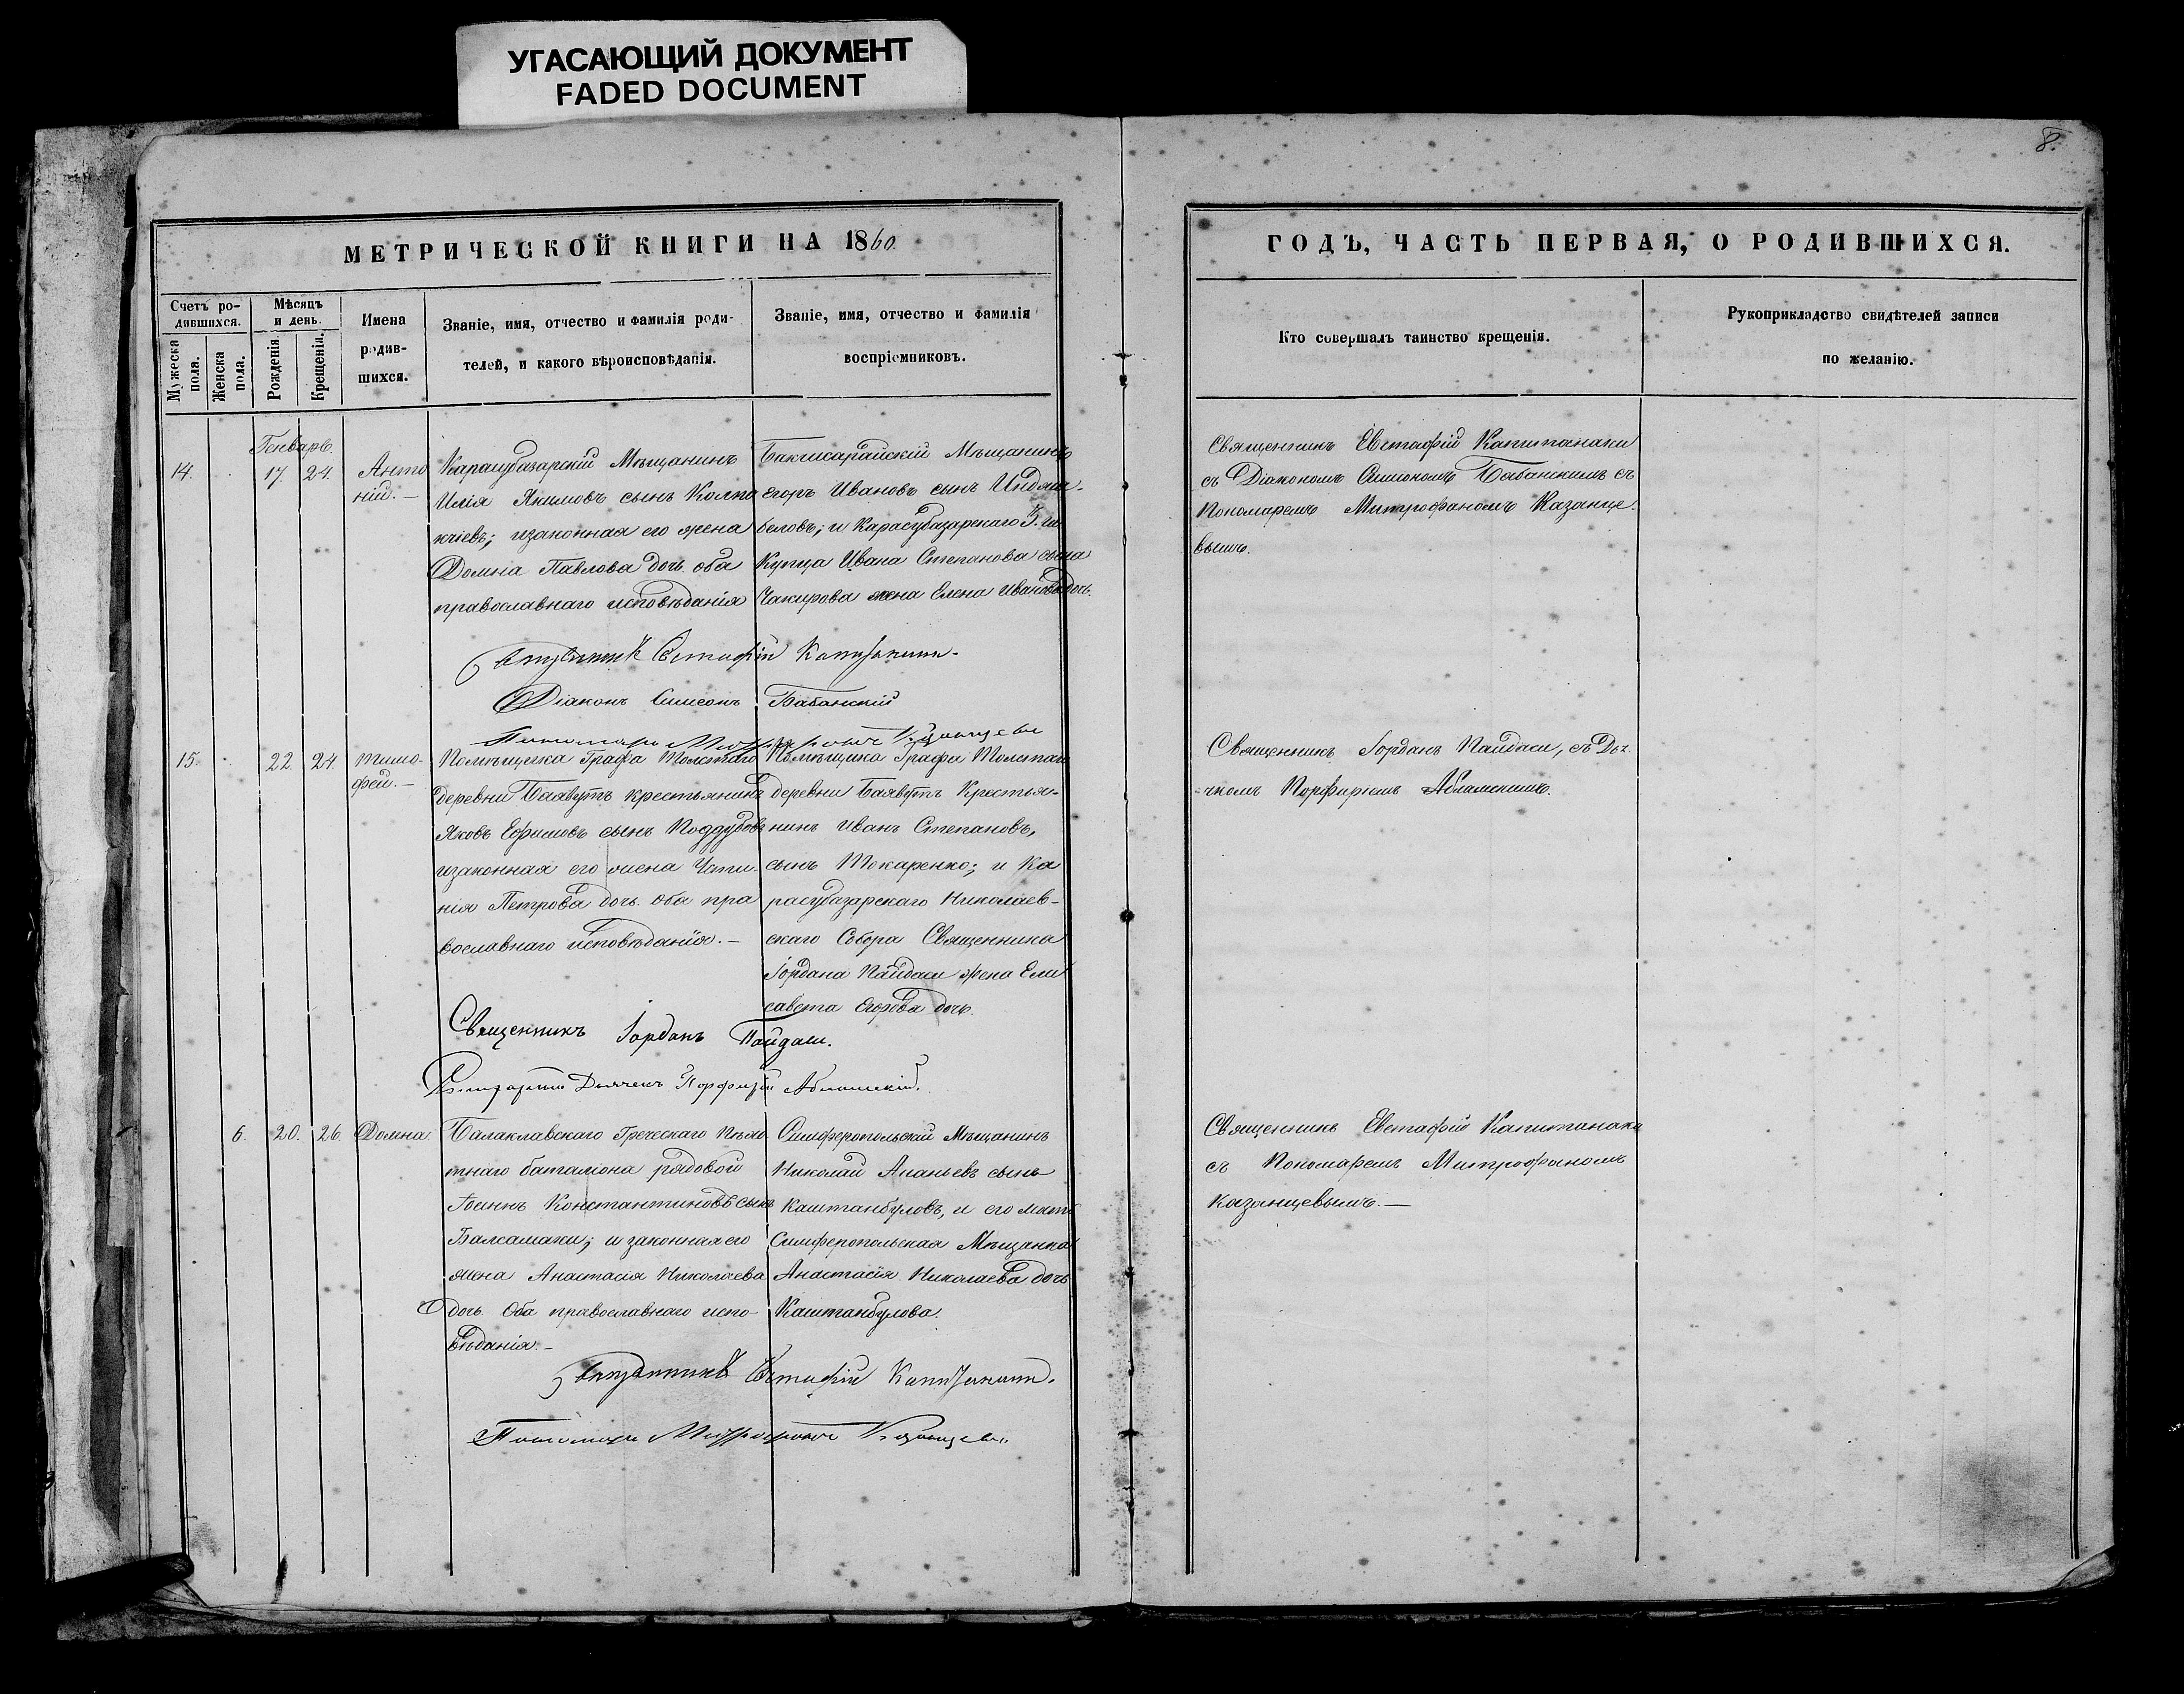 УГАСАЮЩИЙ ДОКУМЕНТ
FADED DOCUMENT
8.
МЕТРИЧЕСКОЙ КНИГИ НА 1860.
Счетъ ро-
дившихся.
Мужеска пола.
Женска пола.
Мѣсяцъ
и день.
Рожденія.
Крещенія.
Имена
родив-
шихся.
Званіе, имя, отчество и фамилія роди-
телей, и какого вѣроисповѣданія.
Званіе, имя, отчество и фамилія
воспріемниковъ.
Генварь.
14.
17.
24.
Анто
ній.—
Карасубазарскій Мѣщанинъ
Илія Якимовъ сынъ Колпа
кчіевъ; изаконная его жена
Домна Павлова дочь. оба
православнаго исповѣданія
Бакчисарайскій Мѣщанинъ
Егоръ Ивановъ сынъ
беловъ; и Карасубазарскаго 3. ги
Купца Ивана Степанова сына
Чакирова жена Елена Иванова дочь.
Священникъ Евстафій Капитанаки.
Діаконъ Симеонъ Бабанскій
Пономарь Митрофанъ Казанцевъ
15.
22.
24.
Тимо-
фей.—
Помѣщика Графа Толстаго
деревни Баявутъ крестьянинъ
Яковъ Ефимовъ сынъ Поддубовъ
изаконная его жена
нія Петрова дочь. Оба пра
вославнаго исповѣданія.—
Помѣщика Графа Толстаго
деревни Баявутъ Крестья-
нинъ Иванъ Степановъ,
сынъ Токаренко; и Ка
расубазарскаго Николаев-
скаго Собора Священника
Іордана Пайдаси жена Ели
савета Егорева дочь.
Священникъ Іорданъ Пайдаси.
Дьячекъ Порфирій
6.
20.
26.
Домна.
Балаклавскаго Греческаго пѣхо
тнаго баталіона рядовой
Константиновъ сынъ
Балсамаки; и законная его
жена Анастасія Николаева
дочь. Оба православнаго испо-
вѣданія.—
Симферопольскій Мѣщанинъ
Николай Ананьевъ сынъ
Каштанбуловъ, и его мать
Симферопольская Мѣщанка
Анастасія Николаева дочь
Каштанбулова.
Священникъ Евстафій Капитанаки.
Пономарь Митрофанъ Казанцевъ
ГОДЪ, ЧАСТЬ ПЕРВАЯ, О РОДИВШИХСЯ.
Кто совершалъ таинство крещенія.
Рукоприкладство свидѣтелей записи
по желанію.
Священникъ Евстафій Капитанаки
съ Діакономъ Симеономъ Бабанскимъ съ
Пономаремъ Митрофаномъ Казанце-
вымъ.
Священникъ Іорданъ Пайдаси, съ Дья-
чкомъ Порфиріемъ
Священникъ Евстафій Капитанаки
съ Пономаремъ Митрофаномъ
Казанцевымъ.—